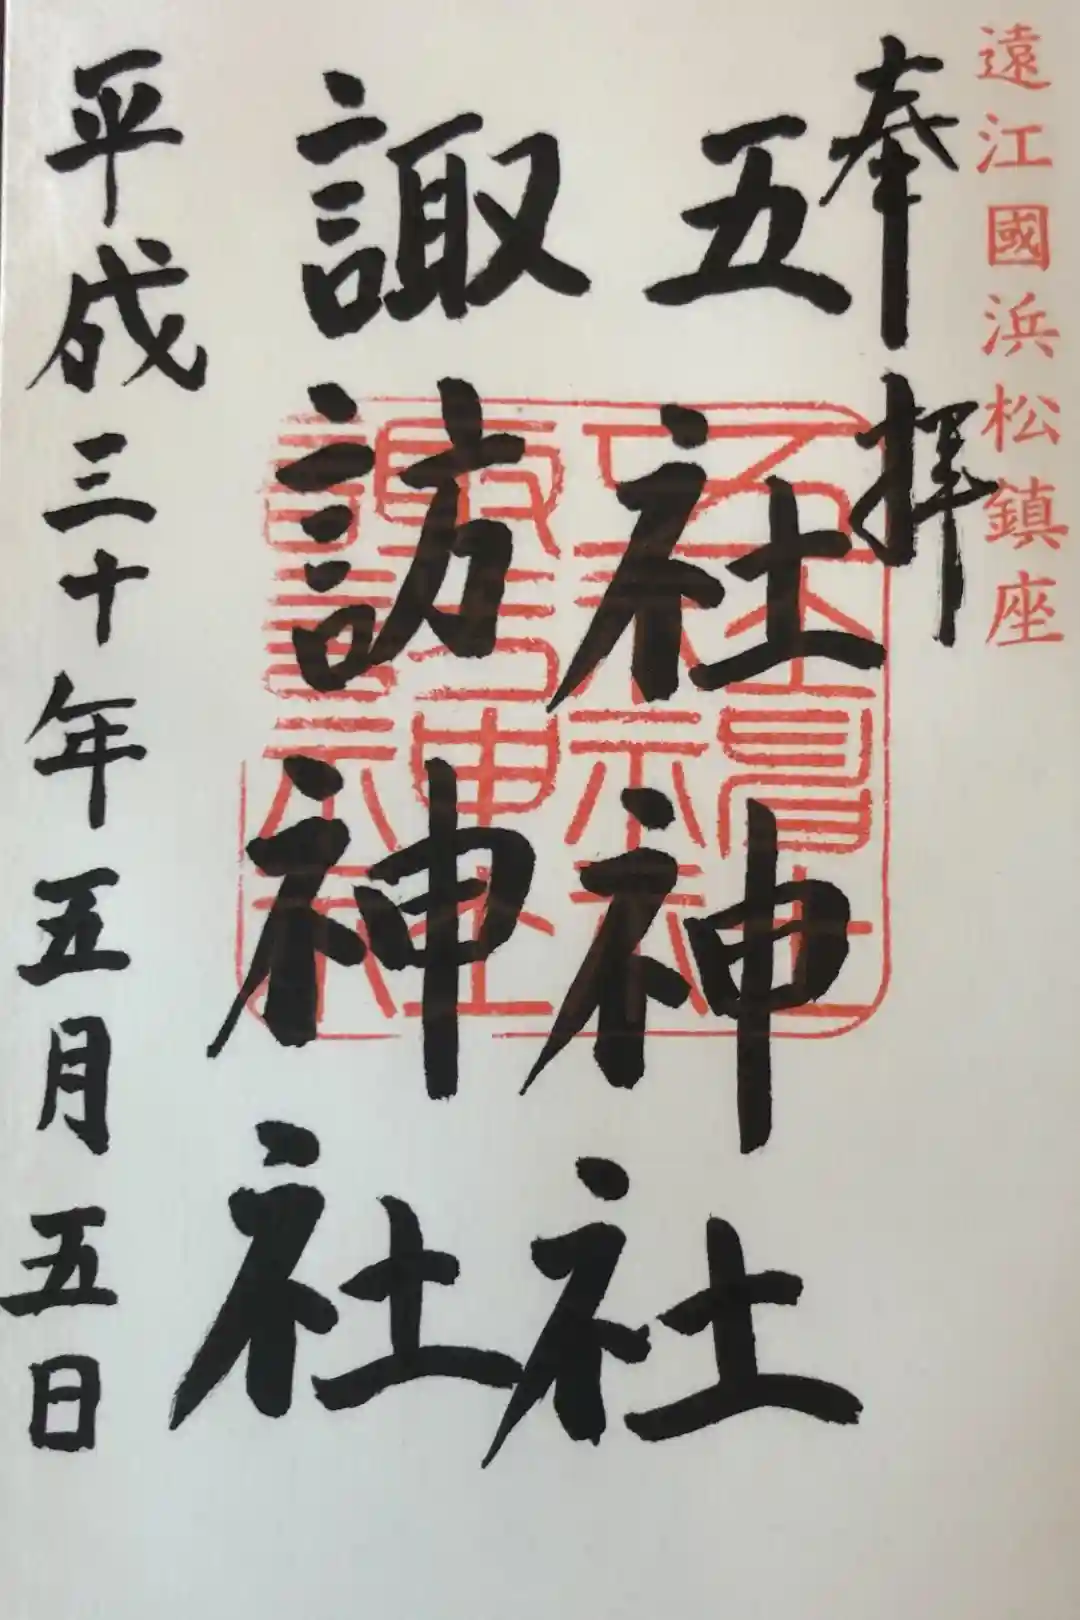 遠江國浜松鎮座
奉拝
五社神社
諏訪神社
平成三十年五月五日